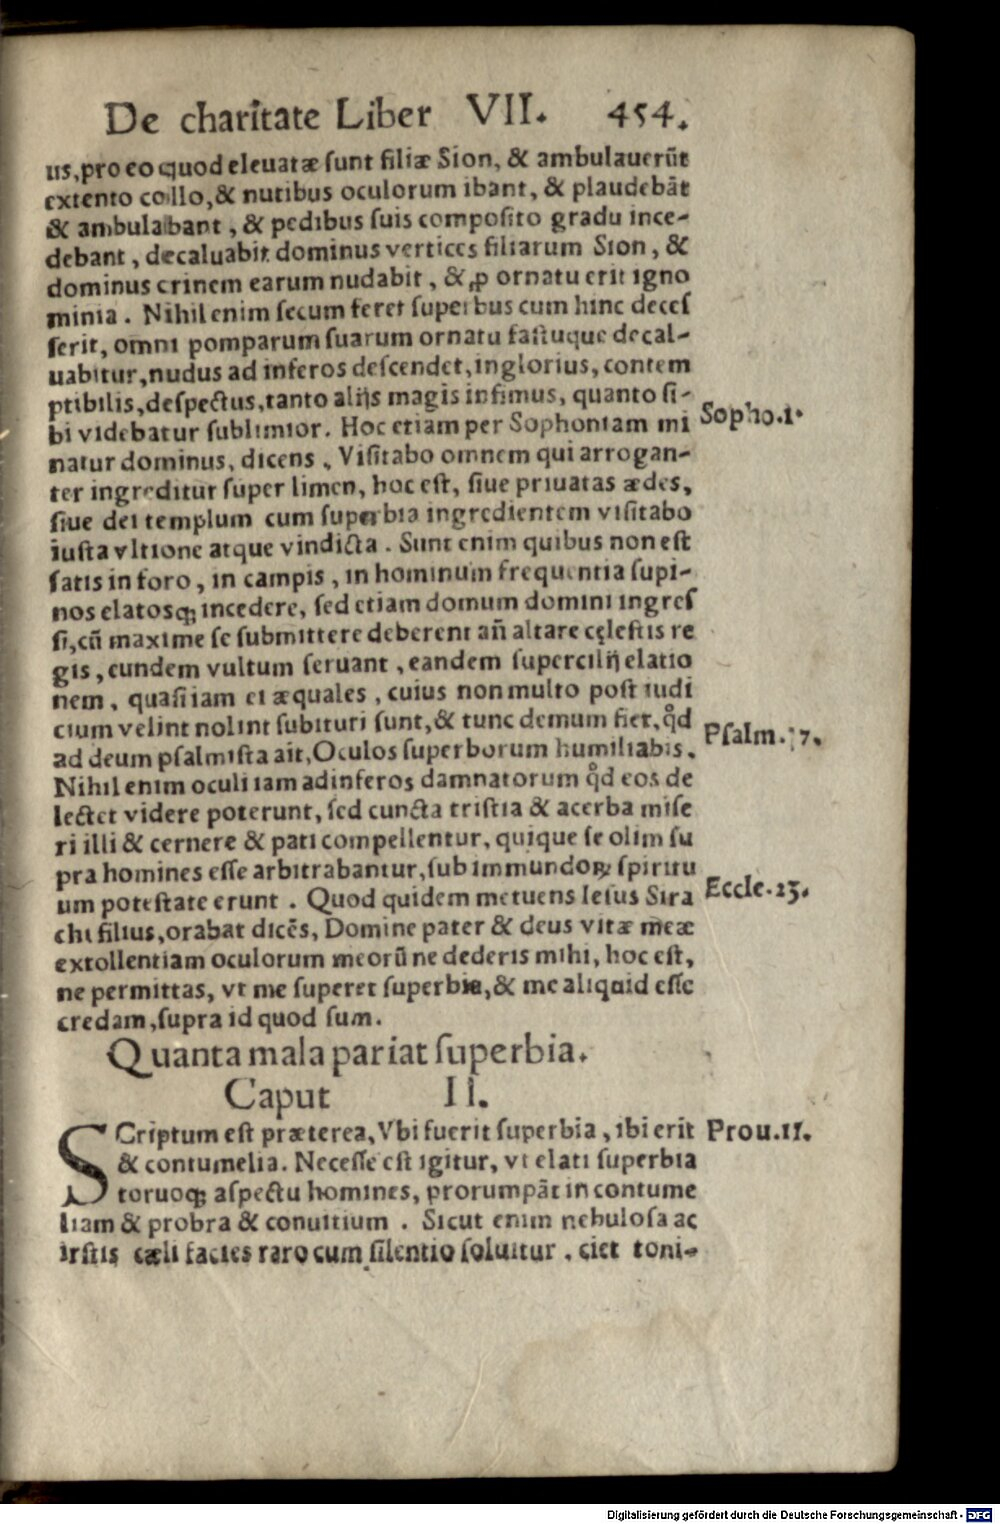 De charitate Liber VII. 454.
us, pro eo quod eleuatæ sunt filiæ Sion, & ambulauerũt
extento collo, & nutibus oculorum ibant, & plaudebãt
& ambulabant, & pedibus suis composito gradu ince-
debant, decaluabit dominus vertices filiarum Sion, &
dominus crinem earum nudabit, & ꝓ ornatu erit igno
minia. Nihil enim secum feret superbus cum hinc deces
serit, omni pomparum suarum ornatu fastuque decal-
uabitur, nudus ad inferos descendet, inglorius, contem
ptibilis, despectus, tanto alijs magis infimus, quanto si-
bi videbatur sublimior. Hoc etiam per Sophoniam mi
Sopho.1.
natur dominus, dicens, Visitabo omnem qui arrogan-
ter ingreditur super limen, hoc est, siue priuatas ædes,
siue dei templum cum superbia ingredientem visitabo
iusta vltione atque vindicta. Sunt enim quibus non est
satis in foro, in campis, in hominum frequentia supi-
nos elatosq; incedere, sed etiam domum domini ingres
si, cũ maxime se submittere deberent añ altare cęlestis re
gis, eundem vultum seruant, eandem supercilij elatio
nem, quasi iam ei æquales, cuius non multo post iudi
cium velint nolint subituri sunt, & tunc demum fiet, qd̉
Psalm.17.
ad deum psalmista ait, Oculos superborum humiliabis.
Nihil enim oculi iam ad inferos damnatorum qd̉ eos de
lectet videre poterunt, sed cuncta tristia & acerba mise
ri illi & cernere & pati compellentur, quique se olim su
pra homines esse arbitrabantur, sub immundoꝝ spiritu
um potestate erunt. Quod quidem metuens Iesus Sira
Eccle.23.
chi filius, orabat dicẽs, Domine pater & deus vitæ meæ
extollentiam oculorum meorũ ne dederis mihi, hoc est,
ne permittas, vt me superet superbia, & me aliquid esse
credam, supra id quod sum.
Quanta mala pariat superbia.
Caput II.
SCriptum est præterea, Vbi fuerit superbia, ibi erit
Prou.11.
& contumelia. Necesse est igitur, vt elati superbia
toruoq; aspectu homines, prorumpãt in contume
liam & probra & conuitium. Sicut enim nebulosa ac
tristis cæli facies raro cum silentio soluitur, ciet toni-
Digitalisierung gefördert durch die Deutsche Forschungsgemeinschaft - DFG